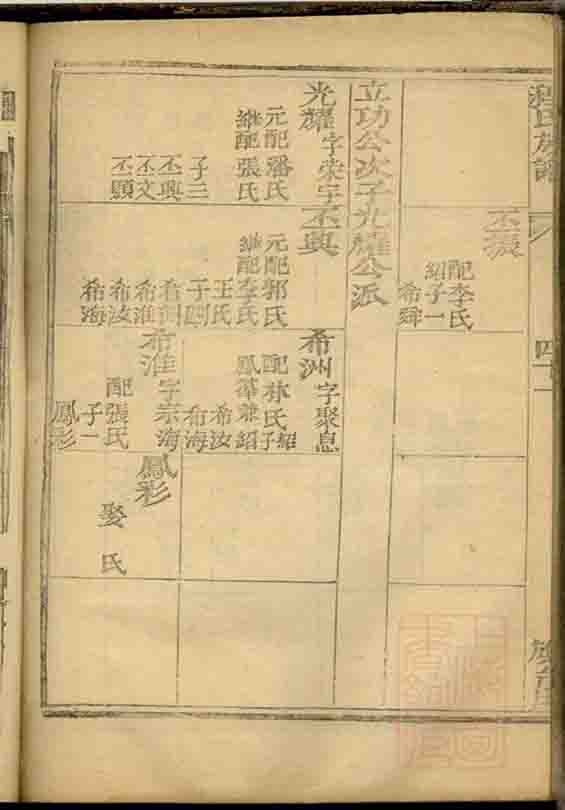 程氏族譜
四十一
丕振
配李氏
紹子一
希舜
立功公次子光耀公派
光耀字榮宇
元配潘氏
繼配張氏
子三
丕興
丕文
丕顯
丕興
元配郭氏
繼配李氏
王氏
子四
希洲
希淮
希汝
希海
希洲字聚息
配林氏紹子
鳳藻兼紹
希汝
希海
希淮字宗海
配張氏
子一
鳳彩
鳳彩
娶 氏